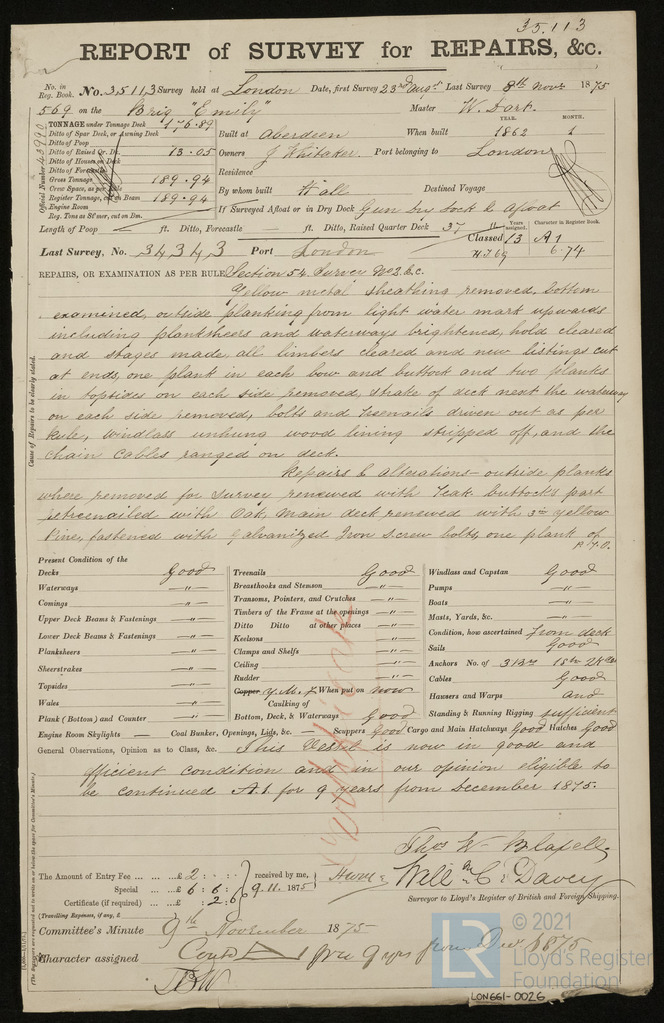 35113
REPORT of SURVEY for REPAIRS, &c.
No. in Reg. Book. No. 35113 Survey held at London Date, first Survey 23rd Augt Last Survey 8th Novr 1875
569 on the Brig "Emily" Master W. Dark.
TONNAGE under Tonnage Deck 176.89
Ditto of Spar Deck, or Awning Deck
Ditto of Poop
Ditto of Raised Qr. Dk. 13.05
Ditto of Houses on Deck
Ditto of Forecastle
Gross Tonnage 189.94
Crew Space, as per Rule
Register Tonnage, cut on Beam 189.94
Engine Room
Reg. Tons as St'mer, cut on Bm.
Official Number
Built at Aberdeen When built YEAR. 1862 MONTH. 1
Owners J Whitaker Port belonging to London
Residence
By whom built Hall Destined Voyage
If Surveyed Afloat or in Dry Dock Gun Dry Dock & afloat
Length of Poop ft. Ditto, Forecastle ft. Ditto, Raised Quarter Deck 37 "
Years assigned. Character in Register Book.
Classed 13 A1
6.74
Last Survey, No. 34343 Port London
REPAIRS, OR EXAMINATION AS PER RULE, Section 54. Survey No 2. &c.
Cause of Repairs to be clearly stated.
Yellow metal sheathing removed, bottom
examined, outside planking from light water mark upwards
including planksheers and waterways brightened, hold cleared
and stages made, all limbers cleared and new listings cut
at ends, one plank in each bow and buttock and two planks
in topsides on each side removed, strake of deck next the waterway
on each side removed, bolts and treenails driven out as per
Rule, windlass unhung wood lining stripped off, and the
chain cables ranged on deck.
Repairs & alterations outside planks
where removed for survey renewed with Teak. buttocks part
retreenailed with Oak, main deck renewed with 3in yellow
Pine, fastened with Galvanized Iron screw bolts, one plank of
P.T.O.
Present Condition of the
Decks Good
Waterways "
Comings "
Upper Deck Beams & Fastenings "
Lower Deck Beams & Fastenings "
Planksheers "
Sheerstrakes "
Topsides "
Wales "
Plank (Bottom) and Counter "
Treenails Good
Breasthooks and Stemson "
Transoms, Pointers, and Crutches "
Timbers of the Frame at the openings "
Ditto Ditto at other places "
Keelsons "
Clamps and Shelfs "
Ceiling "
Rudder "
Copper Y.M. When put on now
Caulking of
Bottom, Deck, & Waterways Good
Windlass and Capstan Good
Pumps "
Boats "
Masts, Yards, &c. "
Condition, how ascertained from deck
Sails Good
Anchors No. of
Cables Good
Hausers and Warps and
Standing & Running Rigging sufficient
Engine Room Skylights — Coal Bunker, Openings, Lids, &c. — Scuppers Good Cargo and Main Hatchways Good Hatches Good
General Observations, Opinion as to Class, &c. This Vessel is now in good and
efficient condition and in our opinion eligible to
be continued A.1. for 9 years from December 1875.
Thos W
Will C Davey
Surveyor to Lloyd's Register of British and Foreign Shipping.
The Amount of Entry Fee £ 2 : :
Special £ 6 : 6 :
Certificate (if required) £ : 2 : 6
received by me, 9.11.1875
(Travelling Expenses, if any, £
Committee's Minute 9th November 1875
Character assigned Contd A1 for 9 yrs from Decr 1875
(The Surveyors are requested not to write on or below the space for Committee's Minute.)
© 2021
Lloyd's Register
Foundation
LR
LON661-0026